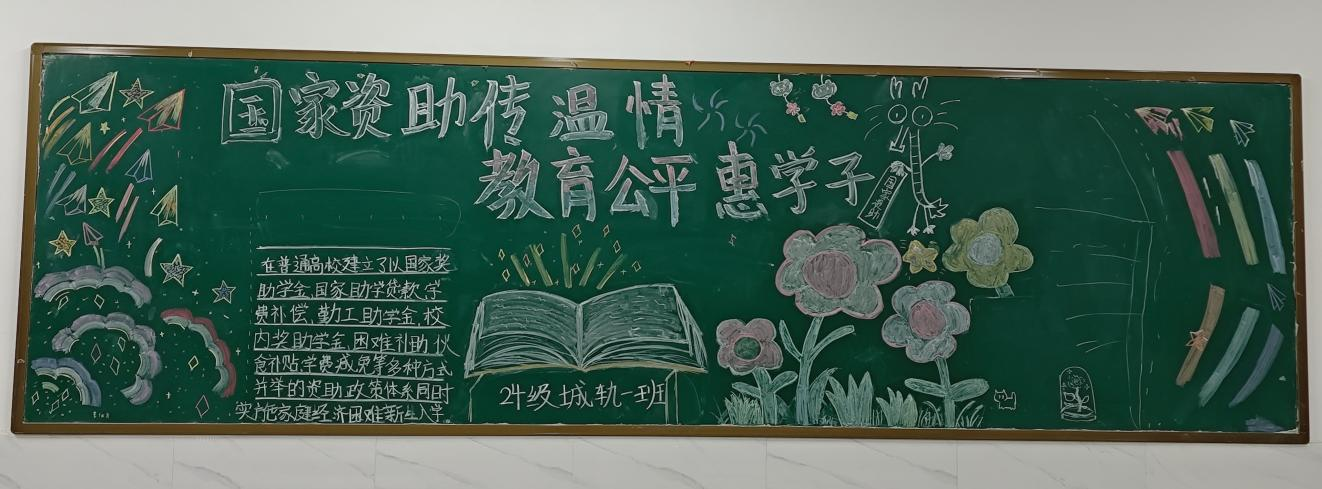 国家资助传温情
教育公平惠学子
国家资助
在普通高校建立了以国家奖
助学金、国家助学贷款、学
费补偿、勤工助学金、校
内奖助学金、困难补助、伙
食补贴、学费减免等多种方式
并举的资助政策体系同时
实施家庭经济困难新生入学
24级城轨一班